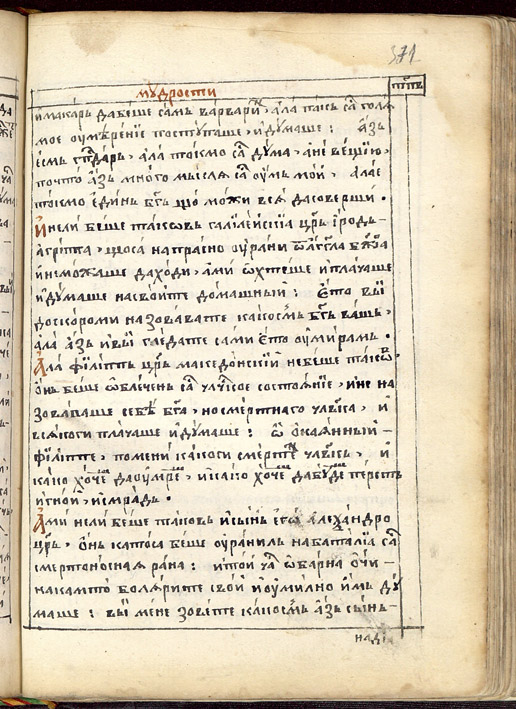 371
мꙋдрости
пп҃в
и макарь да беше самь варвари҆нь, ала пакь са҆ голѧ
мое ꙋмѣрение постꙋпаше, и҆ дꙋмаше : а҆зь
есмь гп҃дарь, ала токмо са҆ дꙋма, а не вещию,
почто а҆зь много мысля са҆ оꙋмь мой, але
токмо единь бг҃ь що можи всѧ да соверши.
И нели беше такꙍвь галилейскїа цр҃ь і҆родь
агріппа, щоса напрасно оꙋрани
и не можаше да ходи, ами ꙍ҆хтеше и плачаше
и дꙋмаше на свойте домашный : є҆то вы҆
доскороми назовавате какосмь бг҃ь вашь,
ала азь и вы҆ гледате сами є҆то оꙋмирамь.
Ала філіппь цр҃ь македонскій не беше такꙍв
онь беше ꙍ҆блечень са҆ члч҃ское состоѧніе, и не на
зоваваше себѣ бг҃а, но смертнаго члв҃ка, и
всѧкоги плачаше и҆ дꙋмаше : ꙍ҆ ѻ҆каѧнный
філіппе, помени какоси смерте члв҃кь, и
како хо́чешь да оꙋмреш, и како хо́чешь да бꙋде персть
и гной, и смрадь.
Ами нели беше таковь и сынь его҆ але҆ѯандро
цр҃ь, онь катоса беше оꙋраниль на баталїа са҆
смертоносная рана : и той ꙍ҆барна очи
на камто болярите свой и оꙋмилно и҆мь дꙋ
маше : вы҆ мене зовете какосмь а҆зь сынь
надї